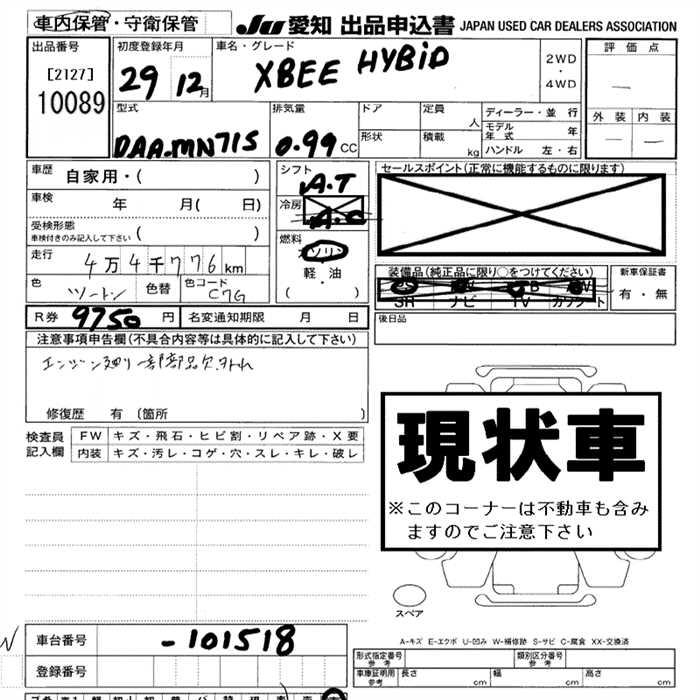 車内保管・守衛保管 JU 愛知 出品申込書 JAPAN USED CAR DEALERS ASSOCIATION
出品番号 [2127] 10089
初度登録年月 29 12月
車名・グレード XBEE HYBiD
2WD・4WD
評価点 —
外装 — 内装 —
型式 DAA-MN71S
排気量 0.99 CC
ドア
形状
定員 人
積載 kg
ディーラー・並行
モデル年式 年
ハンドル 左・右
車歴 自家用・( )
車検 年 月( 日)
受検形態 車検付きのみ記入して下さい ( )
走行 4万4千776km
色 ツートン 色替 色コード C7G
シフト A.T
冷房 A.C
燃料 ガソリン
軽・油
( )
セールスポイント(正常に機能するものに限ります)
装備品(純正品に限り○をつけてください)
SR ナビ TV カワシート
新車保証書 有・無
R券 9750円 名変通知期限 月 日
後日品
注意事項申告欄(不具合内容等は具体的に記入して下さい)
エンジン廻り一部部品欠、外れ
修復歴 有 〔箇所 〕
検査員記入欄 FW キズ・飛石・ヒビ割・リペア跡・X要
内装 キズ・汚レ・コゲ・穴・スレ・キレ・破レ
現状車
※このコーナーは不動車も含み
ますのでご注意下さい
スペア
A-キズ E-エクボ U-凹み W-補修跡 S-サビ C-腐食 XX-交換済
車台番号 -101518
登録番号
形式指定番号 参考 類別区分番号 参考
車庫証明用 参考 長さ cm 幅 cm 高さ cm